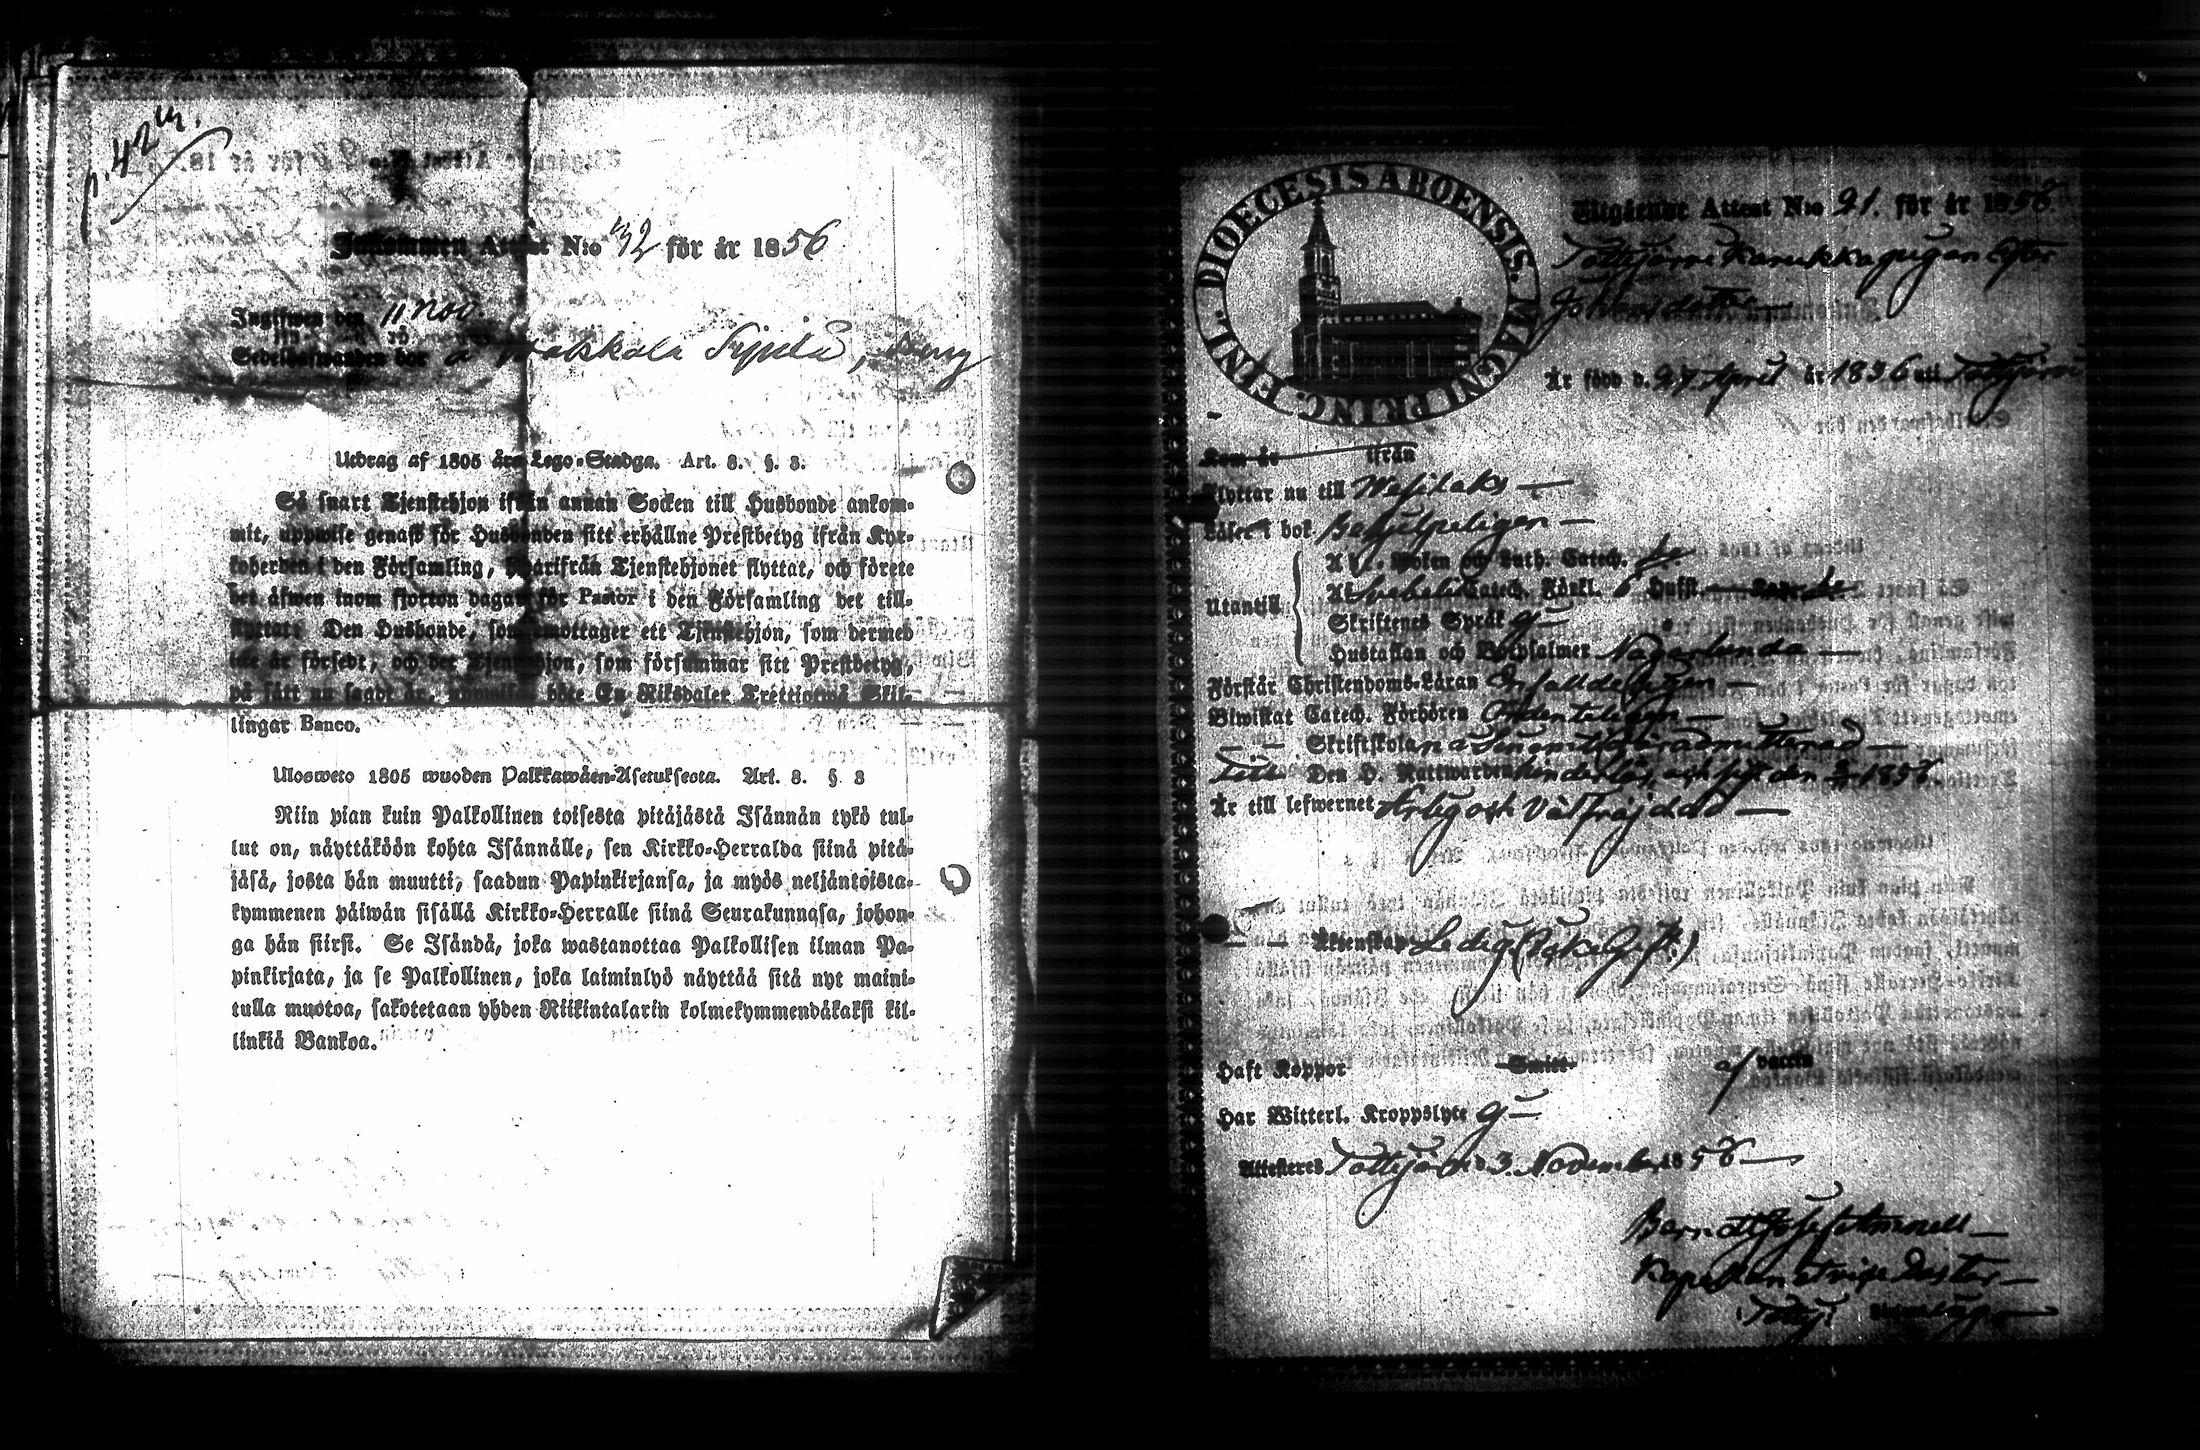 p. 42
Inkommen Attest N:o 32 för år 1856
Ingifwen den 11 Nov.
Sedelhafwanden bor
Utdrag af 1805 års Lego-Stadga. Art. 8. §. 3.
Så snart Tjenstehjon ifrån annan Socken till Husbonde ankom-
mit, uppwise genast för Husbonden sitt erhållne Prestbetyg ifrån Kyr-
koherden i den Församling, hwarifrån Tjenstehjonet flyttat, och förete
det äfwen inom fjorton dagar för Pastor i den Församling det till-
flyttat. Den Husbonde, som emottager ett Tjenstehjon, som dermed
icke är försedt, och det Tjenstehjon, som försummar sitt Prestbetyg,
på sätt nu sagdt är, uppwisa, böte En Riksdaler Trettiotwå Skil-
lingar Banco.
Ulosweto 1805 wuoden Palkkawäen-Asetuksesta. Art. 8. §. 3
Niin pian kuin Palkollinen toisesta pitäjästä Isännän tykö tul-
lut on, näyttäköön kohta Isännälle, sen Kirkko-Herralda siinä pitä-
jäsä, josta hän muutti, saadun Papinkirjansa, ja myös neljäntoista-
kymmenen päiwän sisällä Kirkko-Herralle siinä Seurakunnasa, johon-
ga hän siirsi. Se Isändä, joka wastanottaa Palkollisen ilman Pa-
pinkirjata, ja se Palkollinen, joka laiminlyö näyttää sitä nyt maini-
tulla muotoa, sakotetaan yhden Riikintalarin kolmekymmendäkaksi kil-
linkiä Bankoa.
FINL. DIOECESIS ABOENSIS. MAGNI PRINC.
Utgående Attest N:o 91. för år 1856
Tottijärvi Kanukka pigan
Johansdotter
Är född d. 27 April år 1836 uti Tottijärvi
Kom år ifrån
Flyttar nu till Wesilaks
Läser i bok Behjelpeligen
Utantill
A b c Boken och Luth. Catech. be.
Svebelii Catech. Förkl.
Skriftenes Språk
Hustaflan och Botpsalmer Någorlunda
Förstår Christendoms-Läran Enfalldeligen
Biwistat Catech. Förhören Ordenteligen
Skriftskolan
Till Den H. Nattwarden
Är till lefwernet Ärlig och Väl fräjdad
Äktenskap Ledig
Haft Koppor Smitt. af vaccin
Har Witterl. Kroppslyte
Attesteras Tottijärvi d 3. November 1856